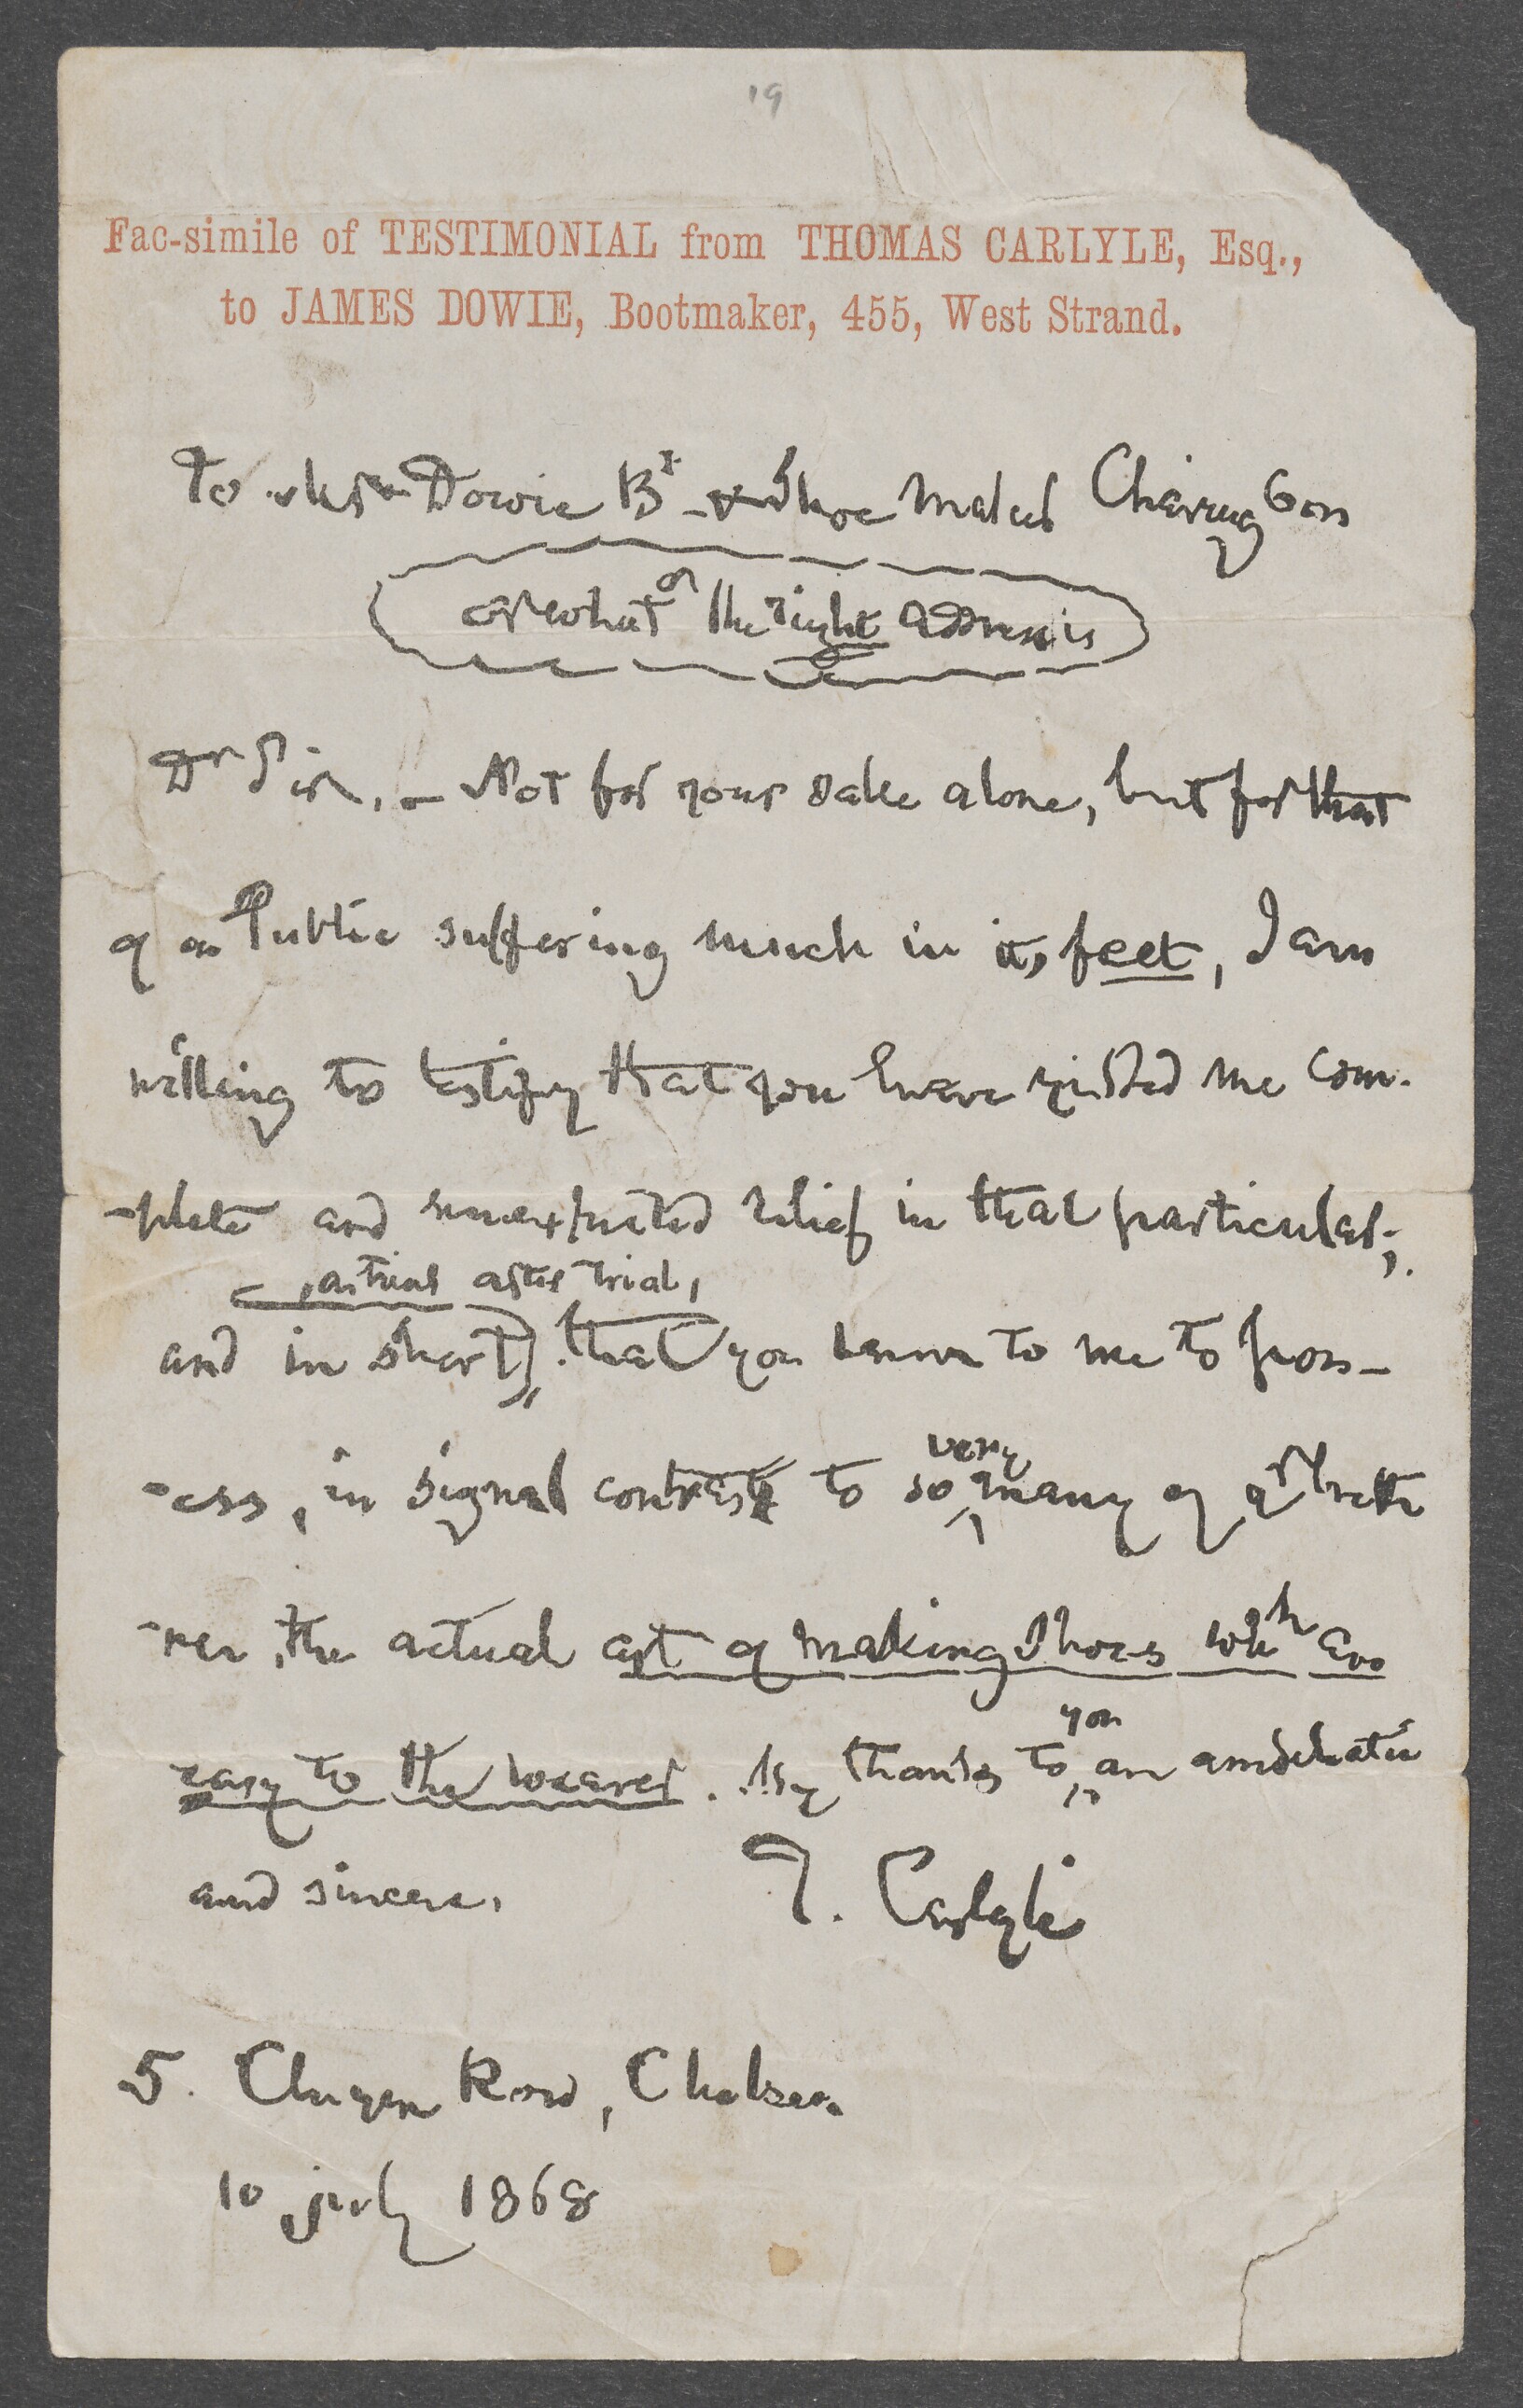 19
Fac-simile of TESTIMONIAL from THOMAS CARLYLE, Esq.,
to JAMES DOWIE, Bootmaker, 455, West Strand.
To Mr Dowie Bt- & Shoe Maker Charing Cross
or what the right address is
Dr Sir, – Not for your sake alone, but for that
of a Public suffering much in its feet, I am
willing to testify that you have yielded me com-
-plete and unexpected relief in that particular;
, actual after trial,
and in short, that you seem to me to poss-
-ess, in signal contrast to so very many of yr breth
-ren, the actual art of making Shoes whh are
easy to the wearer. My thanks to you are emphatic
and sincere. T. Carlyle
5. Cheyne Row, Chelsea
10 july 1868